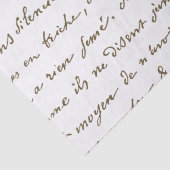 ns silen
es en friche,
a rien semé.
me ils ne disent jam
moyen de